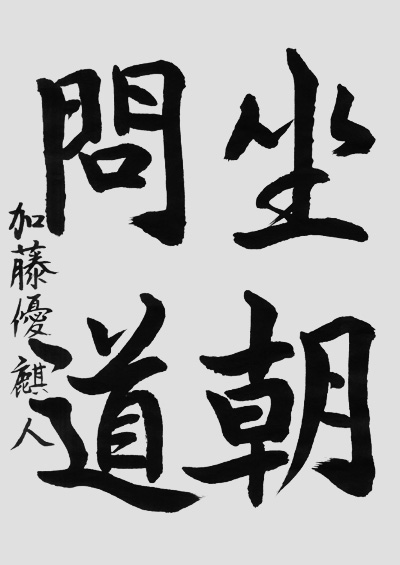 坐朝
問道
加藤優麒人